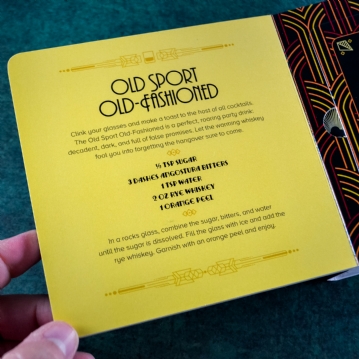 OLD SPORT
OLD-FASHIONED
Clink your glasses and make a toast to the host of all cocktails.
The Old Sport Old-Fashioned is a perfect, roaring party drink:
decadent, dark, and full of false promises. Let the warming whiskey
fool you into forgetting the hangover sure to come.
½ TSP SUGAR
3 DASHES ANGOSTURA BITTERS
1 TSP WATER
2 OZ RYE WHISKEY
1 ORANGE PEEL
In a rocks glass, combine the sugar, bitters, and water
until the sugar is dissolved. Fill the glass with ice and add the
rye whiskey. Garnish with an orange peel and enjoy.